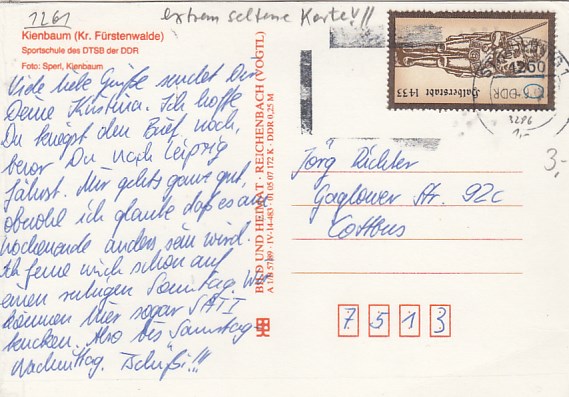 1261
extrem seltene Karte!!!
Kienbaum (Kr. Fürstenwalde)
Sportschule des DTSB der DDR
Foto: Sperl, Kienbaum
Viele liebe Grüße sendet Dir
Deine Kristina. Ich hoffe
Du kriegst den Brief noch,
bevor Du nach Leipzig
fährst. Mir gehts ganz gut,
obwohl ich glaube daß es am
Wochenende anders sein wird.
Ich freue mich schon auf
einen ruhigen Sonntag. Wir
können hier sogar SAT1
kucken. Also bis „Samstag-
nachmittag. Tschüßi!!!
BILD UND HEIMAT · REICHENBACH (VOGTL)
IV-14-483 · 01 05 07 172 K · DDR 0,25 M
Halberstadt 1433
DDR
3286
1,-
3,-
Jörg Richter
Gaglower Str. 92c
Cottbus
7513